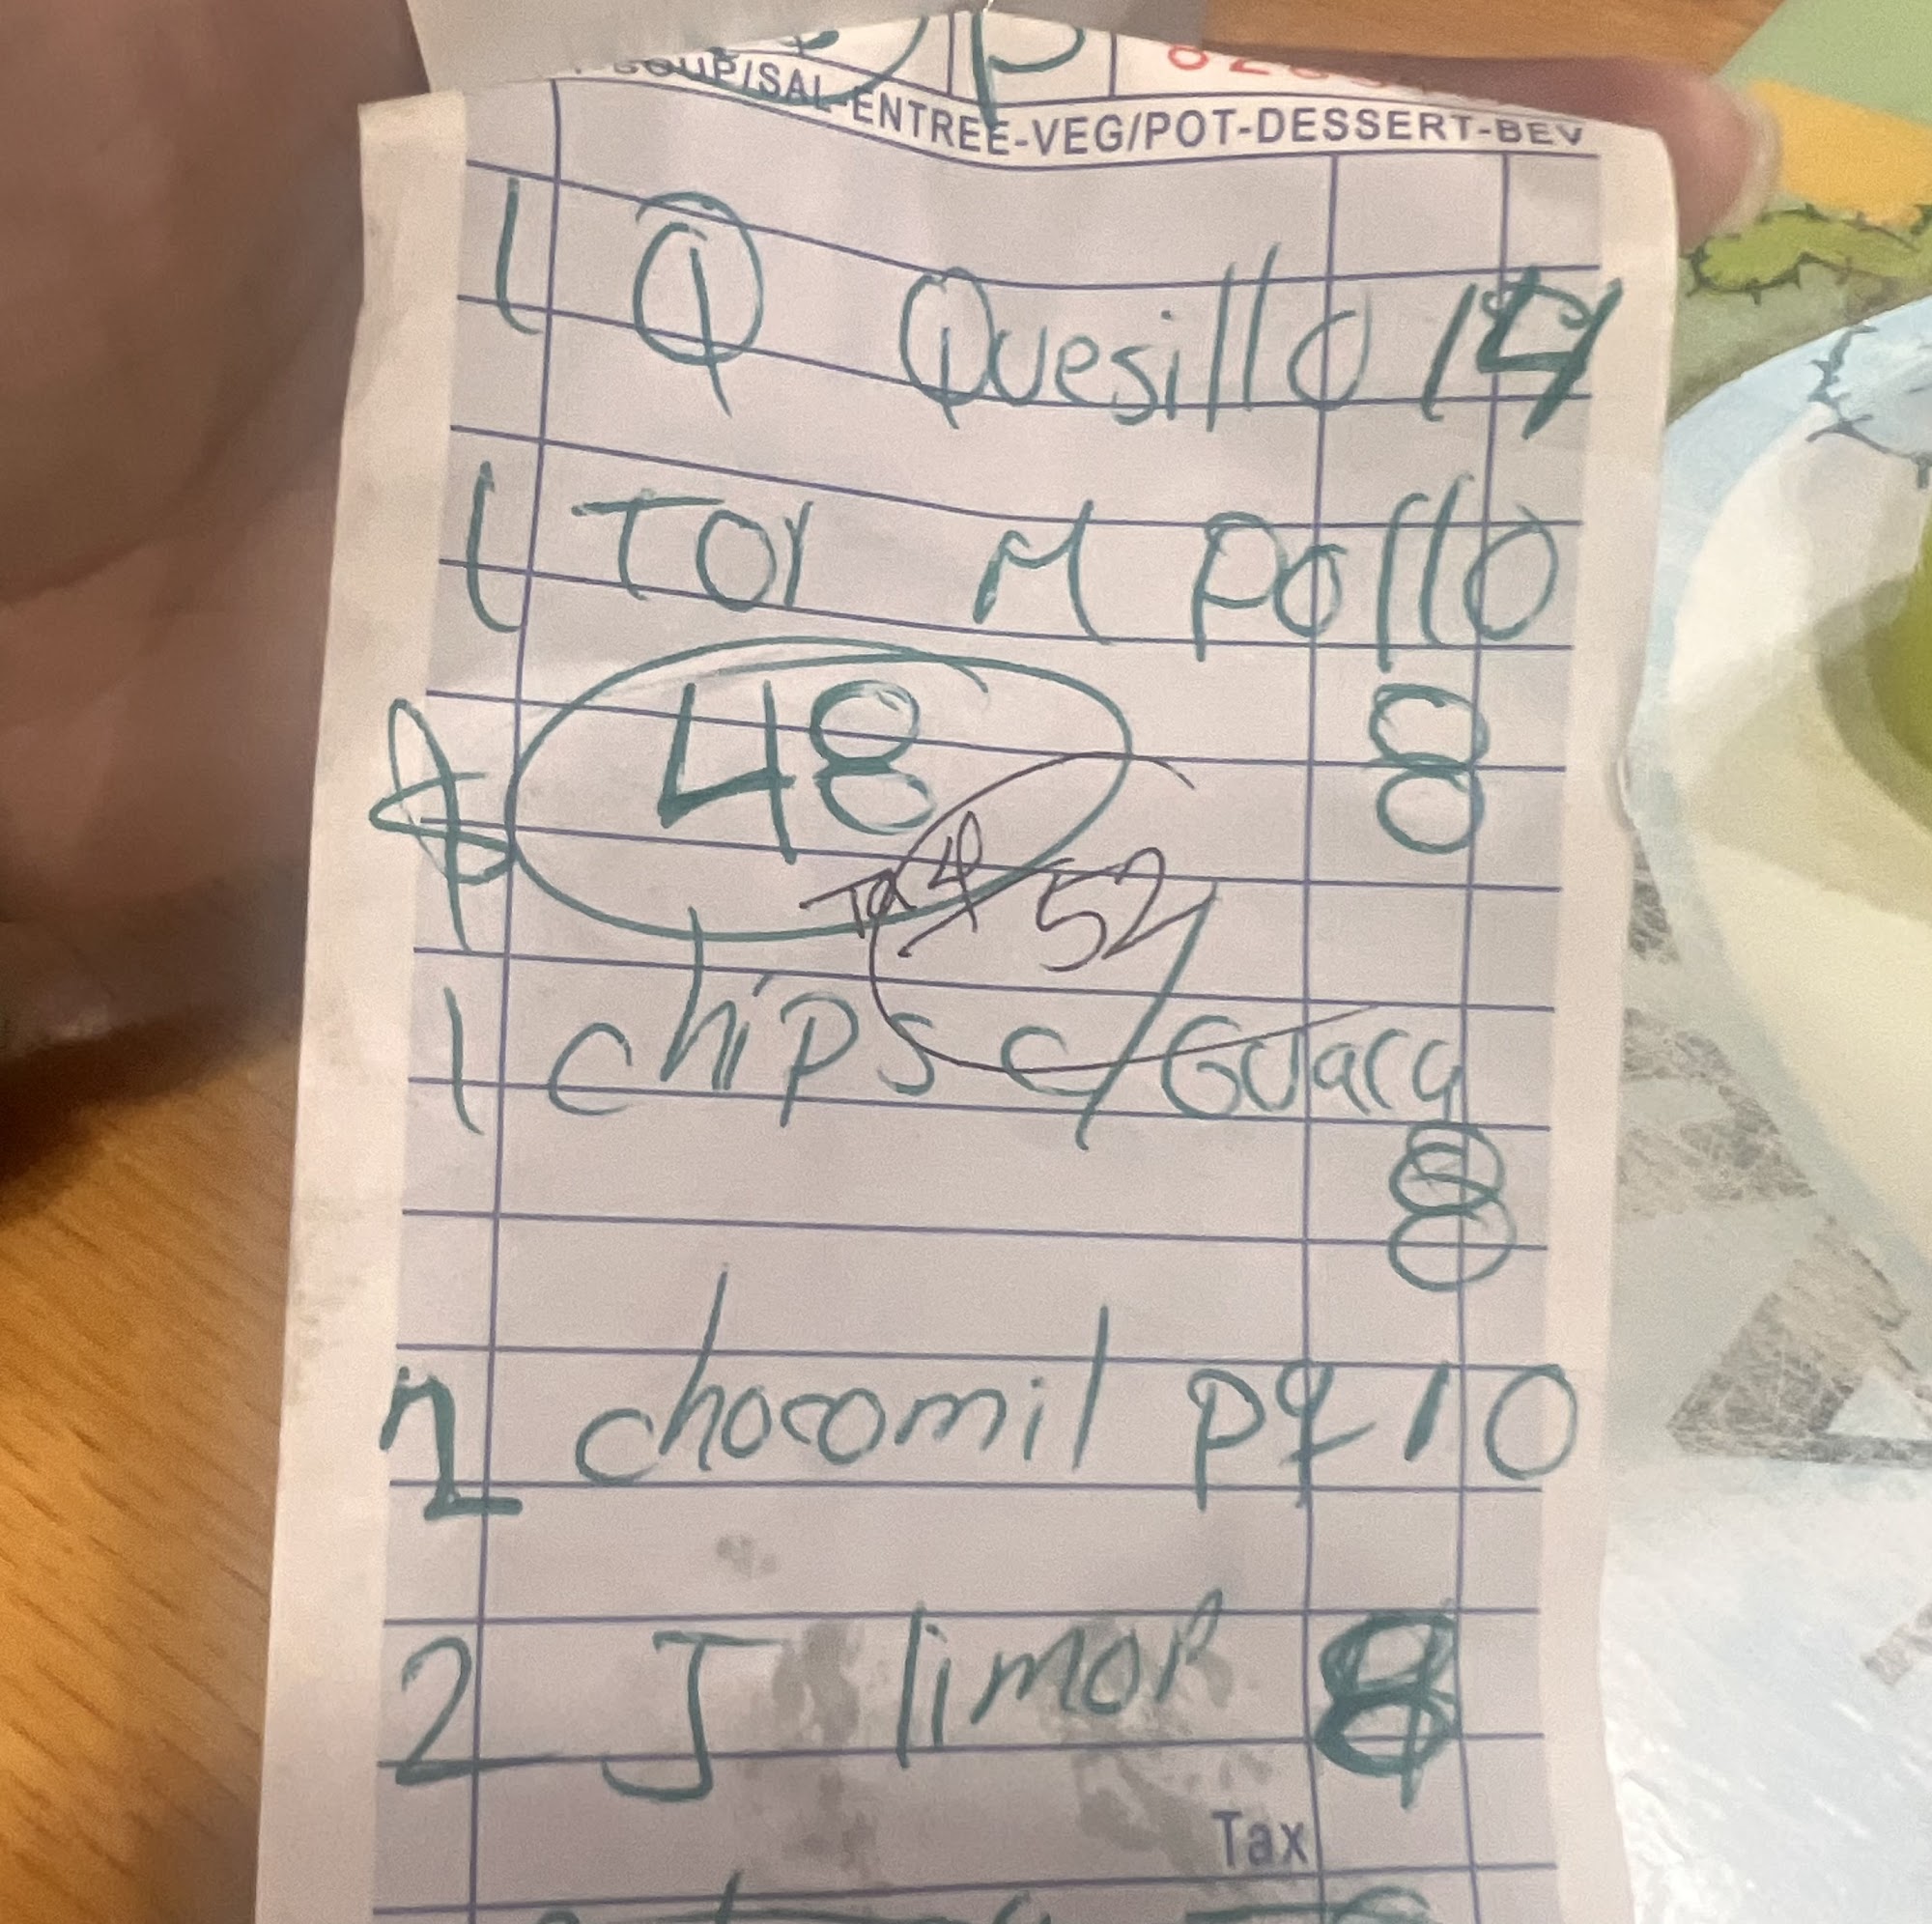 SOUP/SAL-ENTREE-VEG/POT-DESSERT-BEV
1 Q Quesillo 14
1 TOR M Pollo
48 8
Ta 4 52
1 chips c/Guaca
8
2 chocomil pq 10
2 J limon 8
Tax